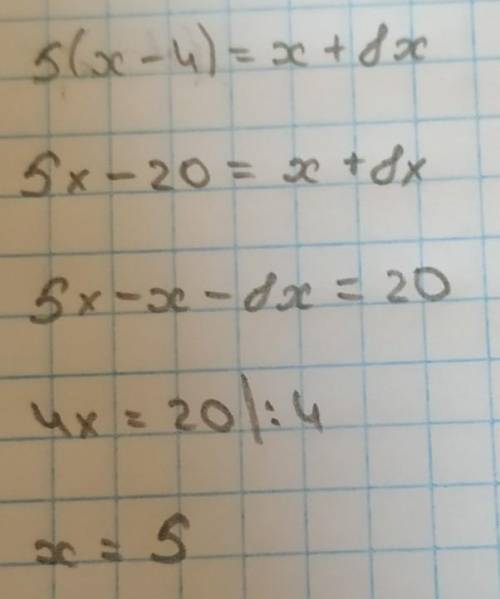 5(x-4)=x+8x
5x-20=x+8x
5x-x-8x=20
4x=20|:4
x=5